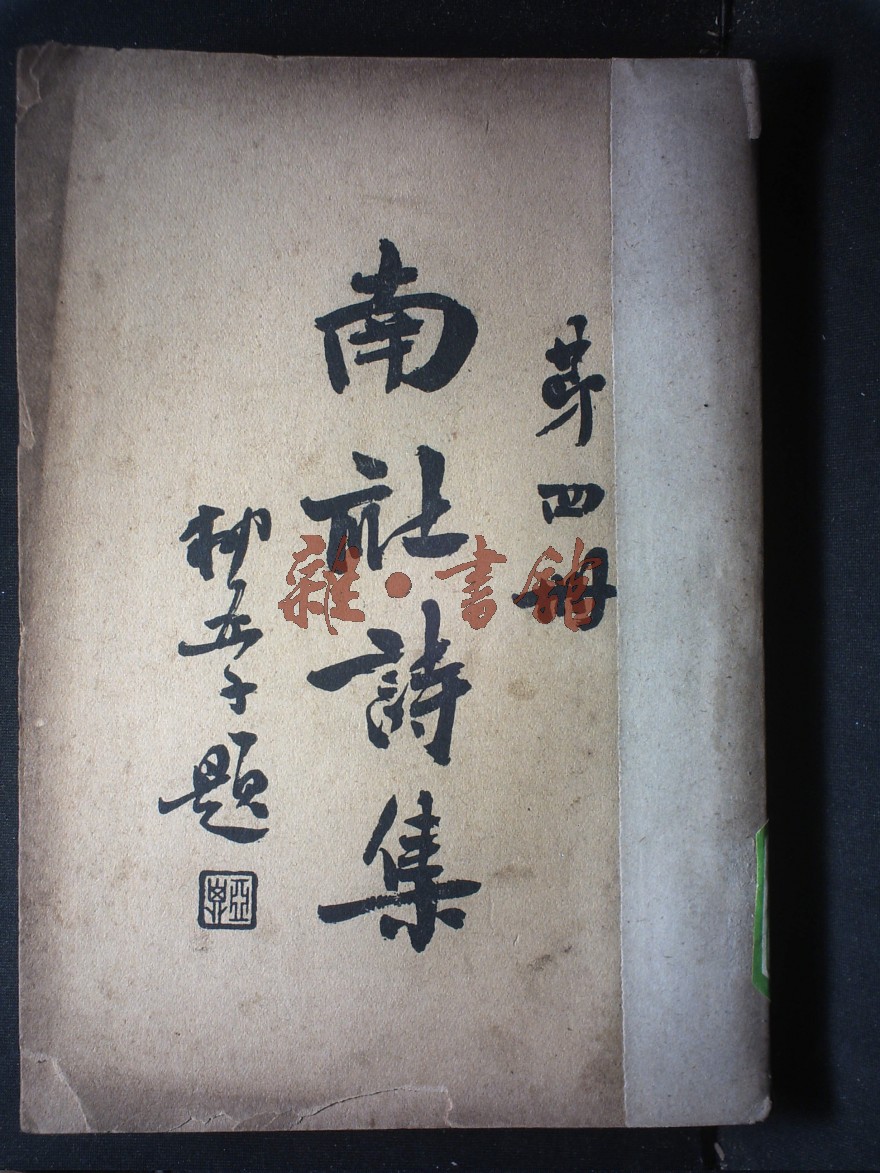 第四冊
南社詩集
柳亞子題
雜·書館